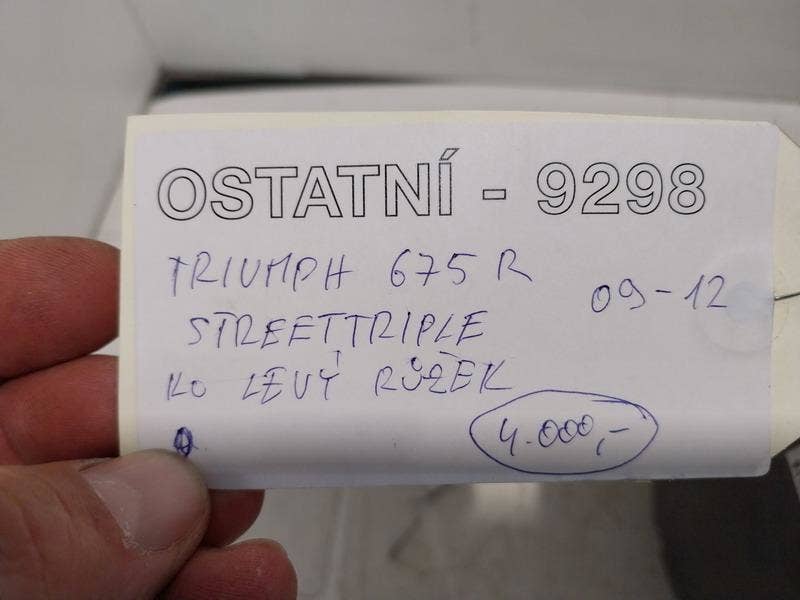 OSTATNÍ - 9298
TRIUMPH 675 R
09-12
STREETTRIPLE
KO LEVÝ RŮŽEK
4.000,-